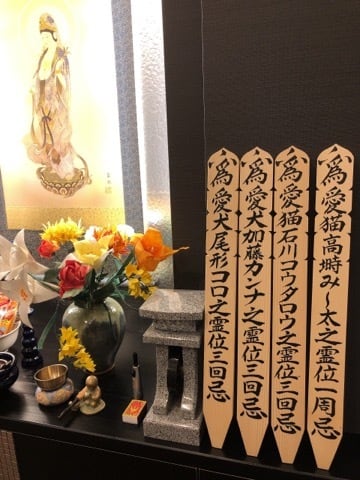 爲愛猫高塒み〜太之霊位一周忌
爲愛猫石川コウタロウ之霊位三回忌
爲愛犬加藤カンナ之霊位三回忌
爲愛犬尾形コロ之霊位三回忌